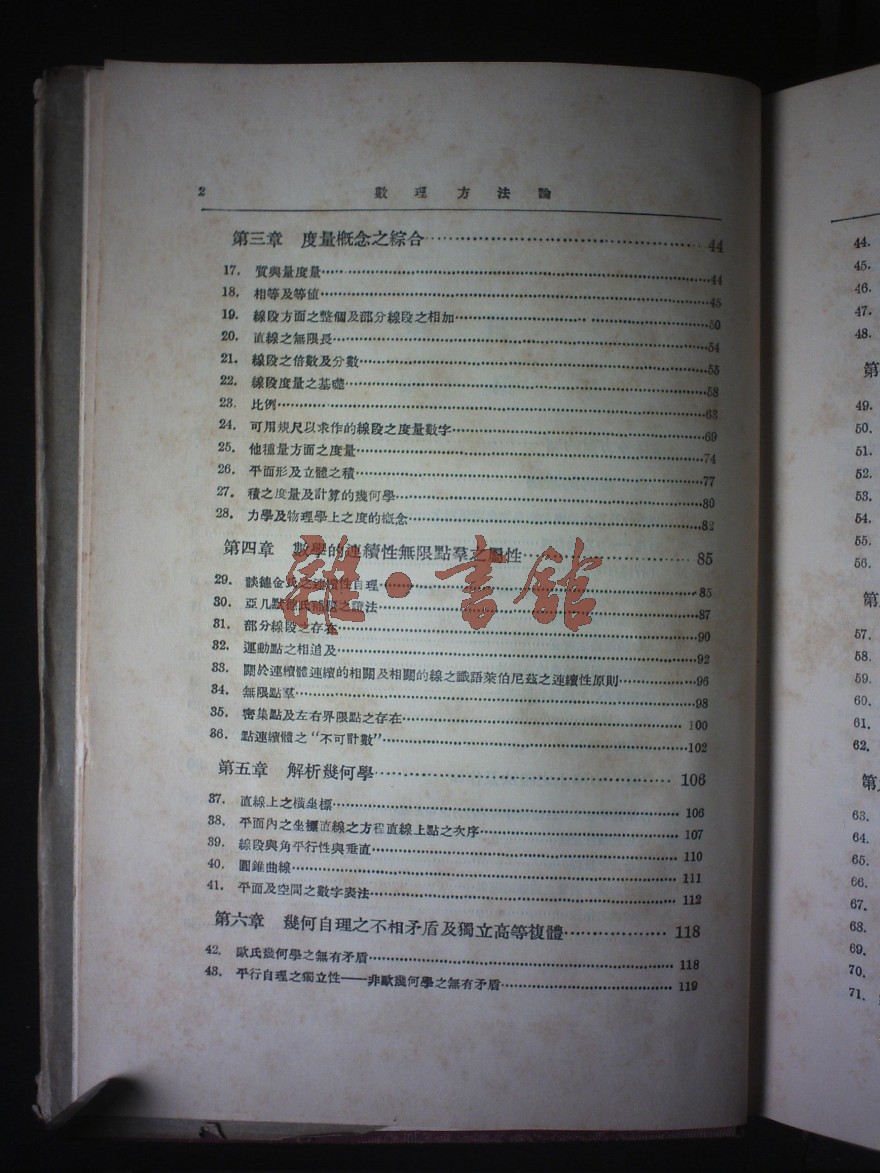 2 數理方法論
第三章 度量概念之綜合 44
17. 質與量度量 44
18. 相等及等值 45
19. 線段方面之整個及部分線段之相加 50
20. 直線之無限長 54
21. 線段之倍數及分數 55
22. 線段度量之基礎 58
23. 比例 63
24. 可用規尺以求作的線段之度量數字 69
25. 他種量方面之度量 74
26. 平面形及立體之積 77
27. 積之度量及計算的幾何學 80
28. 力學及物理學上之度的概念 82
第四章 數學的連續性無限點羣之屬性 85
29. 談德金氏之連續性自理 85
30. 亞几默德氏 之證法 87
31. 部分線段之存在 90
32. 運動點之相追及 92
33. 關於連續體連續的相關及相關的線之識語萊伯尼茲之連續性原則 96
34. 無限點羣 98
35. 密集點及左右界限點之存在 100
36. 點連續體之“不可計數” 102
第五章 解析幾何學 106
37. 直線上之橫坐標 106
38. 平面內之坐標直線之方程直線上點之次序 107
39. 線段與角平行性與垂直 110
40. 圓錐曲線 111
41. 平面及空間之數字表法 112
第六章 幾何自理之不相矛盾及獨立高等複體 118
42. 歐氏幾何學之無有矛盾 118
43. 平行自理之獨立性——非歐幾何學之無有矛盾 119
雜·書館
44.
45.
46.
47.
48.
第
49.
50.
51.
52.
53.
54.
55.
56.
第
57.
58.
59.
60.
61.
62.
第
63.
64.
65.
66.
67.
68.
69.
70.
71.